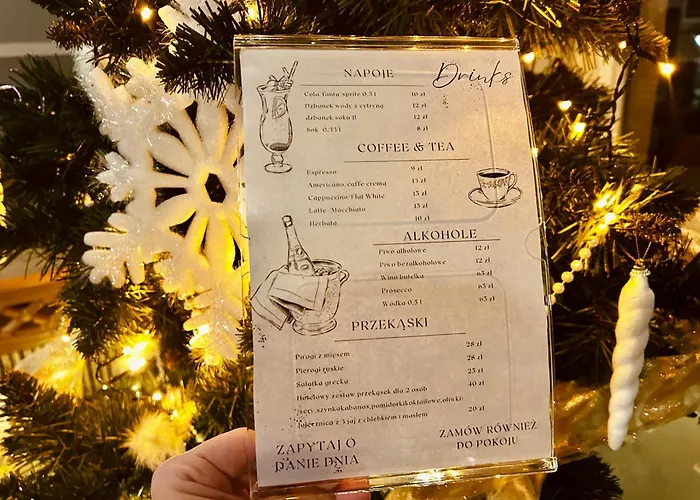 NAPOJE
Drinks
Cola, fanta, sprite 0,5 l 10 zł
Dzbanek wody z cytryną 12 zł
dzbanek soku 1l 12 zł
Sok 0,33 l 8 zł
COFFEE & TEA
Espresso 9 zł
Americano/caffe crema 13 zł
Cappuccino/Flat White 13 zł
Latte/Macchiato 13 zł
Herbata 10 zł
ALKOHOLE
Piwo alholowe 12 zł
Piwo bezalkoholowe 12 zł
Wino butelka 65 zł
Prosecco 65 zł
Wódka 0,5 l 65 zł
PRZEKĄSKI
Pirogi z mięsem 28 zł
Pierogi ruskie 28 zł
Sałatka grecka 25 zł
Hotelowy zestaw przekąsek dla 2 osób 40 zł
(sery,szynka,kabanos,pomidorki koktajlowe,oliwki)
Jajecznica z 3 jaj z chlebkiem i masłem 20 zł
ZAPYTAJ O
DANIE DNIA
ZAMÓW RÓWNIEŻ
DO POKOJU